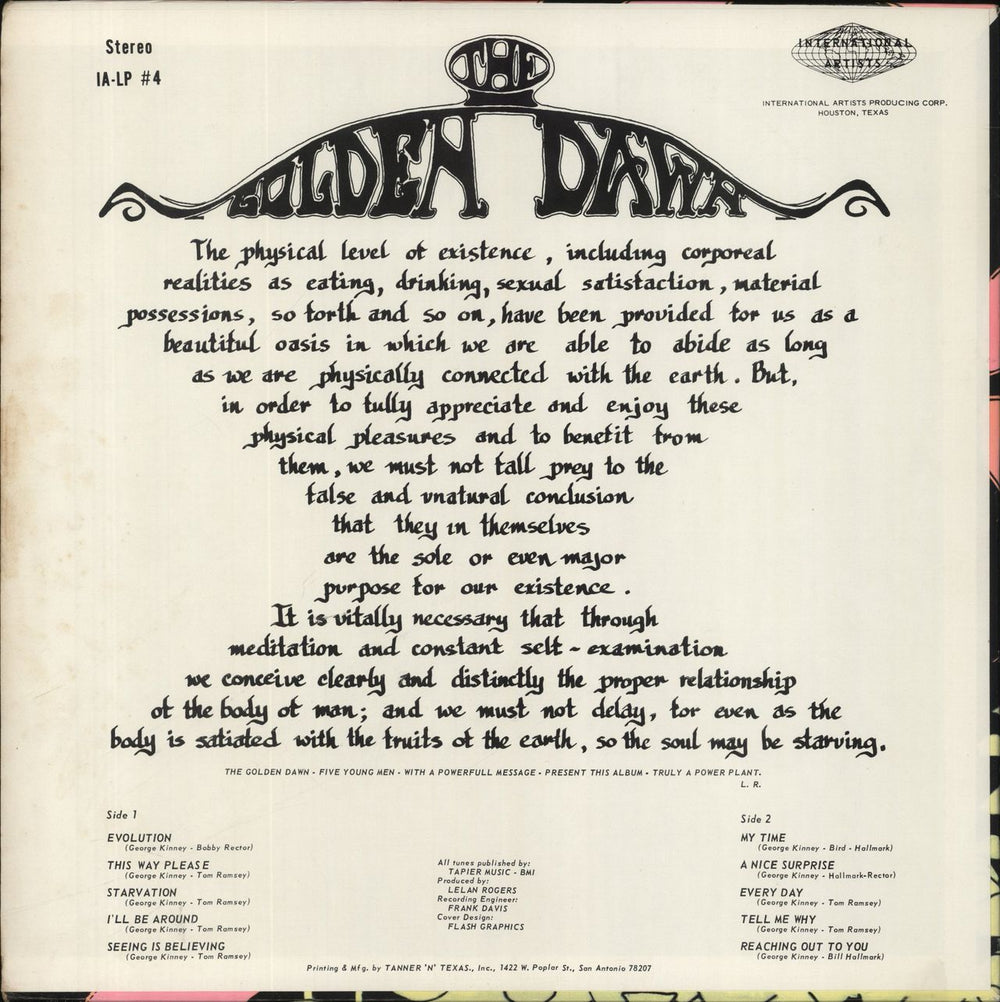 Stereo
IA-LP #4
INTERNATIONAL
ARTISTS
INTERNATIONAL ARTISTS PRODUCING CORP.
HOUSTON, TEXAS
THE
GOLDEN DAWN
The physical level of existence , including corporeal
realities as eating, drinking, sexual satisfaction , material
possessions, so forth and so on, have been provided for us as a
beautiful oasis in which we are able to abide as long
as we are physically connected with the earth . But,
in order to fully appreciate and enjoy these
physical pleasures and to benefit from
them , we must not fall prey to the
false and unnatural conclusion
that they in themselves
are the sole or even major
purpose for our existence .
It is vitally necessary that through
meditation and constant self - examination
we conceive clearly and distinctly the proper relationship
of the body of man; and we must not delay, for even as the
body is satiated with the fruits of the earth , so the soul may be starving.
THE GOLDEN DAWN - FIVE YOUNG MEN - WITH A POWERFULL MESSAGE - PRESENT THIS ALBUM - TRULY A POWER PLANT.
L. R.
Side 1
EVOLUTION
(George Kinney - Bobby Rector)
THIS WAY PLEASE
(George Kinney - Tom Ramsey)
STARVATION
(George Kinney - Tom Ramsey)
I'LL BE AROUND
(George Kinney - Tom Ramsey)
SEEING IS BELIEVING
(George Kinney - Tom Ramsey)
All tunes published by:
TAPIER MUSIC - BMI
Produced by:
LELAN ROGERS
Recording Engineer:
FRANK DAVIS
Cover Design:
FLASH GRAPHICS
Side 2
MY TIME
(George Kinney - Bird - Hallmark)
A NICE SURPRISE
(George Kinney - Hallmark-Rector)
EVERY DAY
(George Kinney - Tom Ramsey)
TELL ME WHY
(George Kinney - Tom Ramsey)
REACHING OUT TO YOU
(George Kinney - Bill Hallmark)
Printing & Mfg. by TANNER 'N' TEXAS., Inc., 1422 W. Poplar St., San Antonio 78207